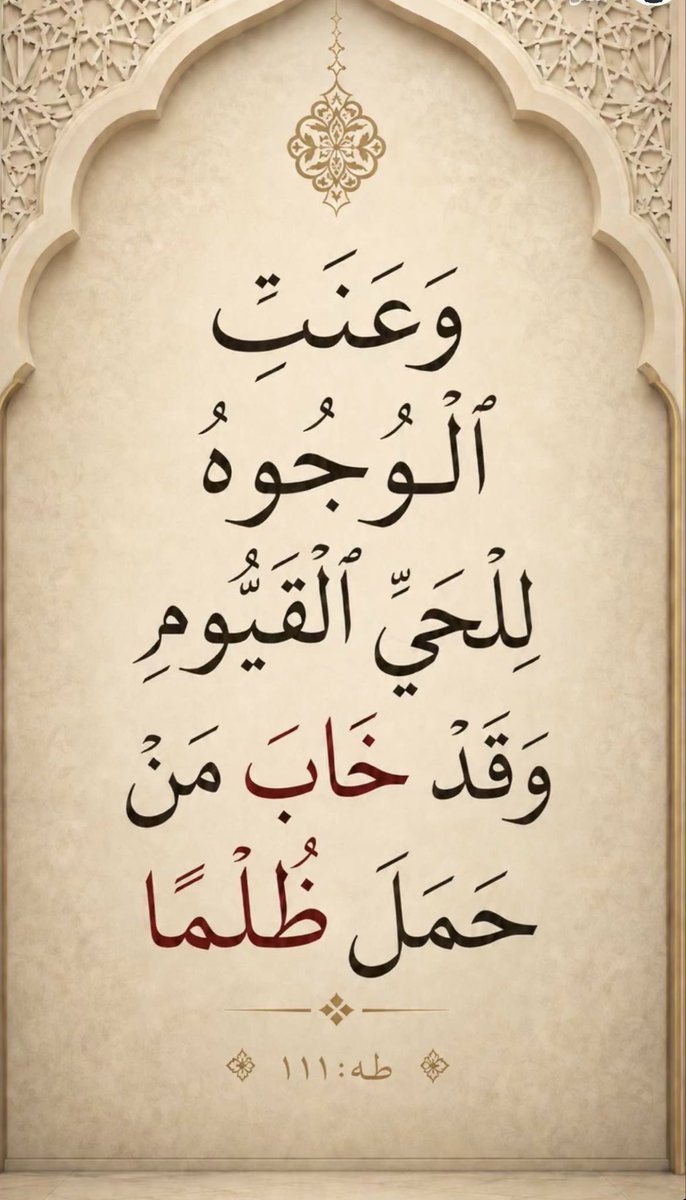 وَعَنَتِ
ٱلْوُجُوهُ
لِلْحَيِّ ٱلْقَيُّومِ
وَقَدْ خَابَ مَنْ
حَمَلَ ظُلْمًا
طه: ١١١